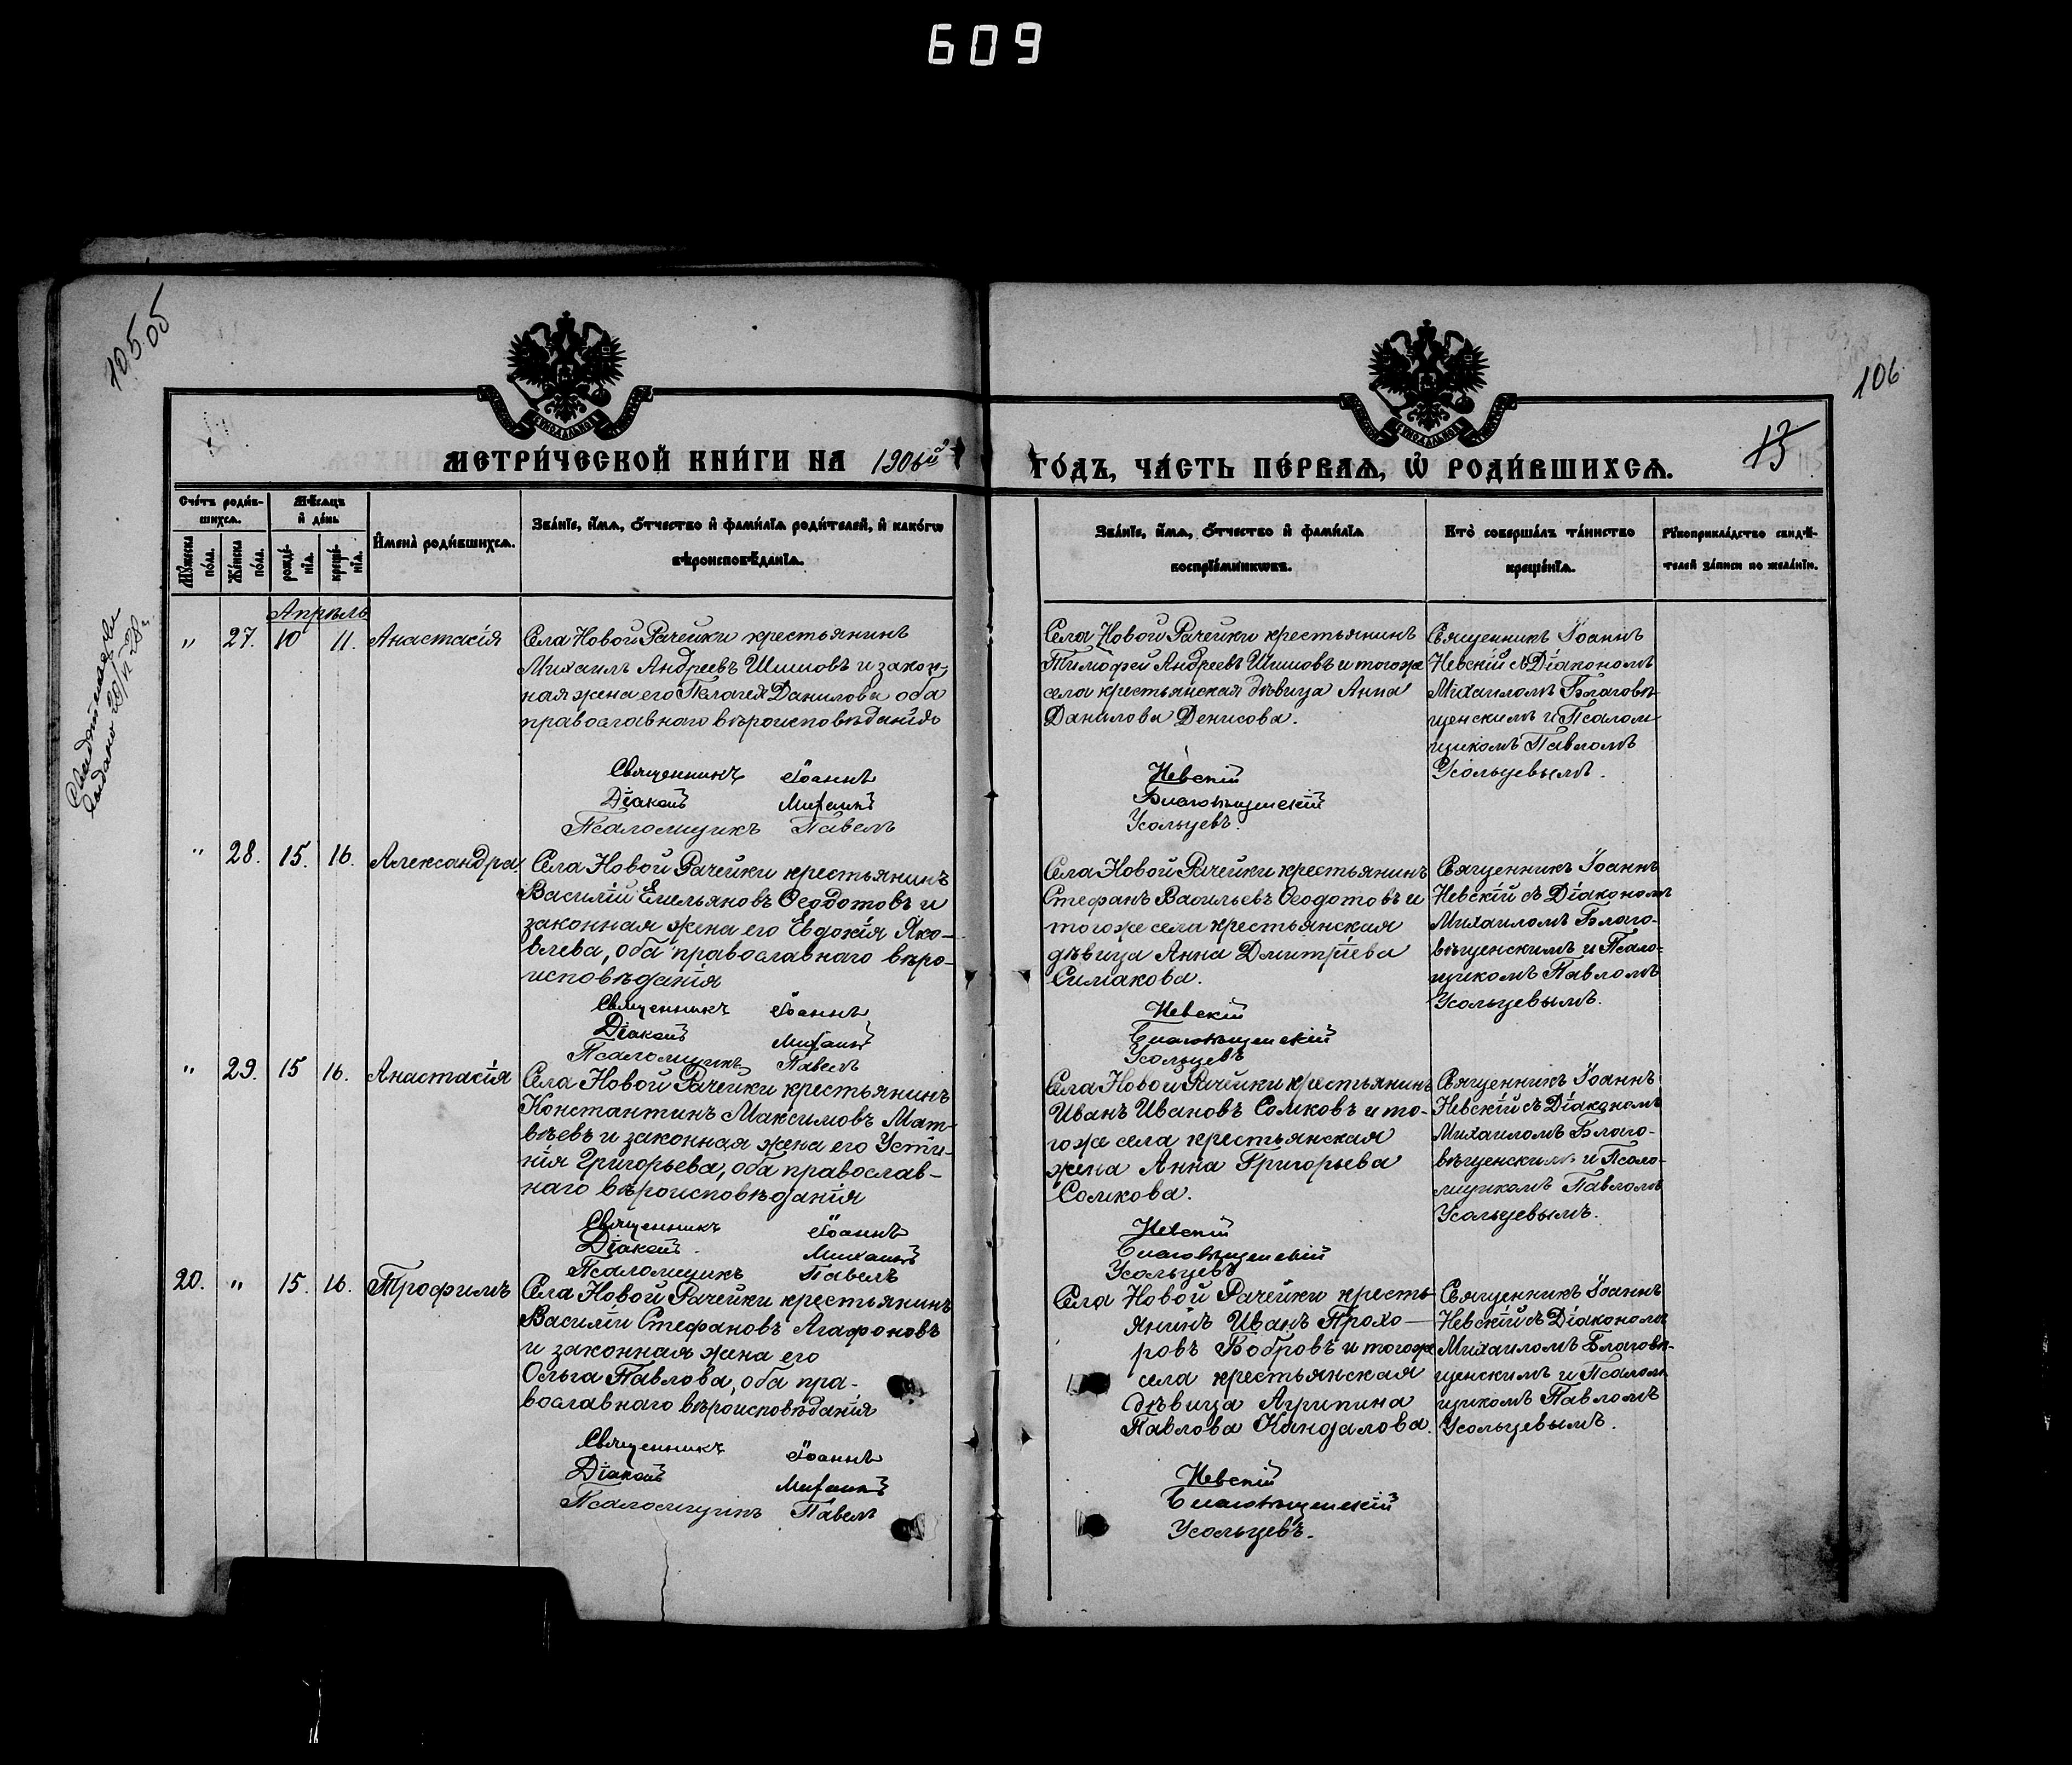 609
105 об
106
13
МЕТРИ́ЧЕСКОЙ КНИ́ГИ НА 1906й
ГО́ДЪ, ЧА́СТЬ ПЕ́РВАѦ, Ѡ҆ РОДИ́ВШИХСѦ.
Сче́тъ роди́в-
шихсѧ.
Мѣ́сѧцъ
и҆ де́нь
Мꙋ́жеска
по́ла.
Же́нска
по́ла.
рожде́-
нїѧ.
креще́-
нїѧ.
И҆мена̀ роди́вшихсѧ.
Зва́нїе, и҆́мѧ, ѻ҆́тчество и҆ фами́лїѧ роди́телей, и҆ како́гѡ
вѣроисповѣ́данїѧ.
Зва́нїе, и҆́мѧ, ѻ҆́тчество и҆ фами́лїѧ
воспрїе́мникѡвъ.
Кто̀ соверша́лъ та́инство
креще́нїѧ.
Рꙋкоприкла́дство свидѣ́-
телей за́писи по жела́нїю.
Апрѣль
" 27. 10 11. Анастасія
Села Новой Рачейки крестьянинъ
Михаилъ Андреевъ Шишовъ и закон-
ная жена его Пелагея Данилова оба
православнаго вѣроисповѣданія
Священникъ Іоаннъ
Діаконъ Михаилъ
Псаломщикъ Павелъ
Села Новой Рачейки крестьянинъ
Тимофей Андреевъ Шишовъ и тогоже
села крестьянская дѣвица Анна
Данилова Денисова.
Невскій
Благовѣщенскій
Усольцевъ.
Священникъ Іоаннъ
Невскій съ Діакономъ
Михаиломъ Благовѣ-
щенскимъ и Псалом
щикомъ Павломъ
Усольцевымъ.
" 28. 15. 16. Александра
Села Новой Рачейки крестьянинъ
Василій Емельяновъ Ѳеодотовъ и
законная жена его Евдокія Яко-
влева, оба православнаго вѣро-
исповѣданія
Священникъ Іоаннъ
Діаконъ Михаилъ
Псаломщикъ Павелъ
Села Новой Рачейки крестьянинъ
Стефанъ Васильевъ Ѳеодотовъ и
тогоже села крестьянская
дѣвица Анна Дмитріева
Симакова.
Невскій
Благовѣщенскій
Усольцевъ
Священникъ Іоаннъ
Невскій съ Діакономъ
Михаиломъ Благо-
вѣщенскимъ и Псало-
щикомъ Павломъ
Усольцевымъ.
" 29. 15 16. Анастасія
Села Новой Рачейки крестьянинъ
Константинъ Максимовъ Мат-
вѣевъ и законная жена его Усти-
нія Григорьева, оба православ-
наго вѣроисповѣданія
Священникъ Іоаннъ
Діаконъ. Михаилъ
Псаломщикъ Павелъ
Села Новой Рачейки крестьянинъ
Иванъ Ивановъ Сомковъ и то-
гоже села крестьянская
жена Анна Григорьева
Сомкова.
Невскій
Благовѣщенскій
Усольцевъ
Священникъ Іоаннъ
Невскій съ Діакономъ
Михаиломъ Благо-
вѣщенскимъ и Псало-
мщикомъ Павломъ
Усольцевымъ.
20. " 15. 16. Трофимъ
Села Новой Рачейки крестьянинъ
Василій Стефановъ Агафоновъ
и законная жена его
Ольга Павлова, оба пра-
вославнаго вѣроисповѣданія
Священникъ Іоаннъ
Діаконъ Михаилъ
Псаломщикъ Павелъ
Села Новой Рачейки кресть
янинъ Иванъ Прохо-
ровъ Бобровъ и тогоже
села крестьянская
дѣвица Агрипина
Павлова Кандалова.
Невскій
Благовѣщенскій
Усольцевъ.
Священникъ Іоаннъ
Невскій съ Діакономъ
Михаиломъ Благовѣ-
щенскимъ и Псалом
щикомъ Павломъ
Усольцевымъ.